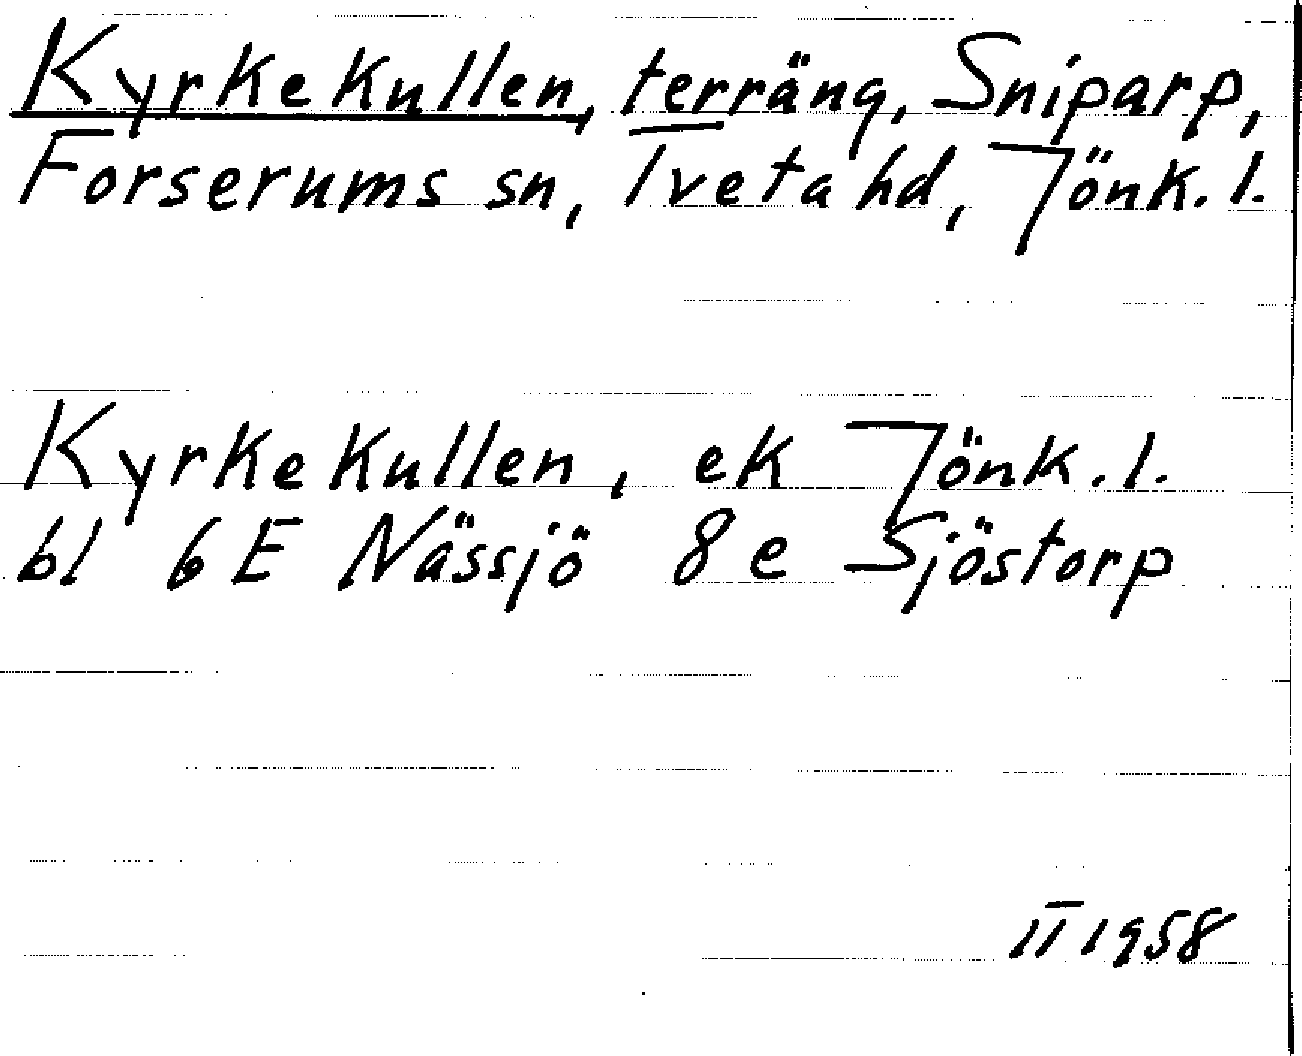 Kyrkekullen, terräng, Sniparp,
Forserums sn, Tveta hd, Jönk. l.
Kyrkekullen, ek Jönk. l.
bl 6E Nässjö 8e Sjöstorp
II 1958